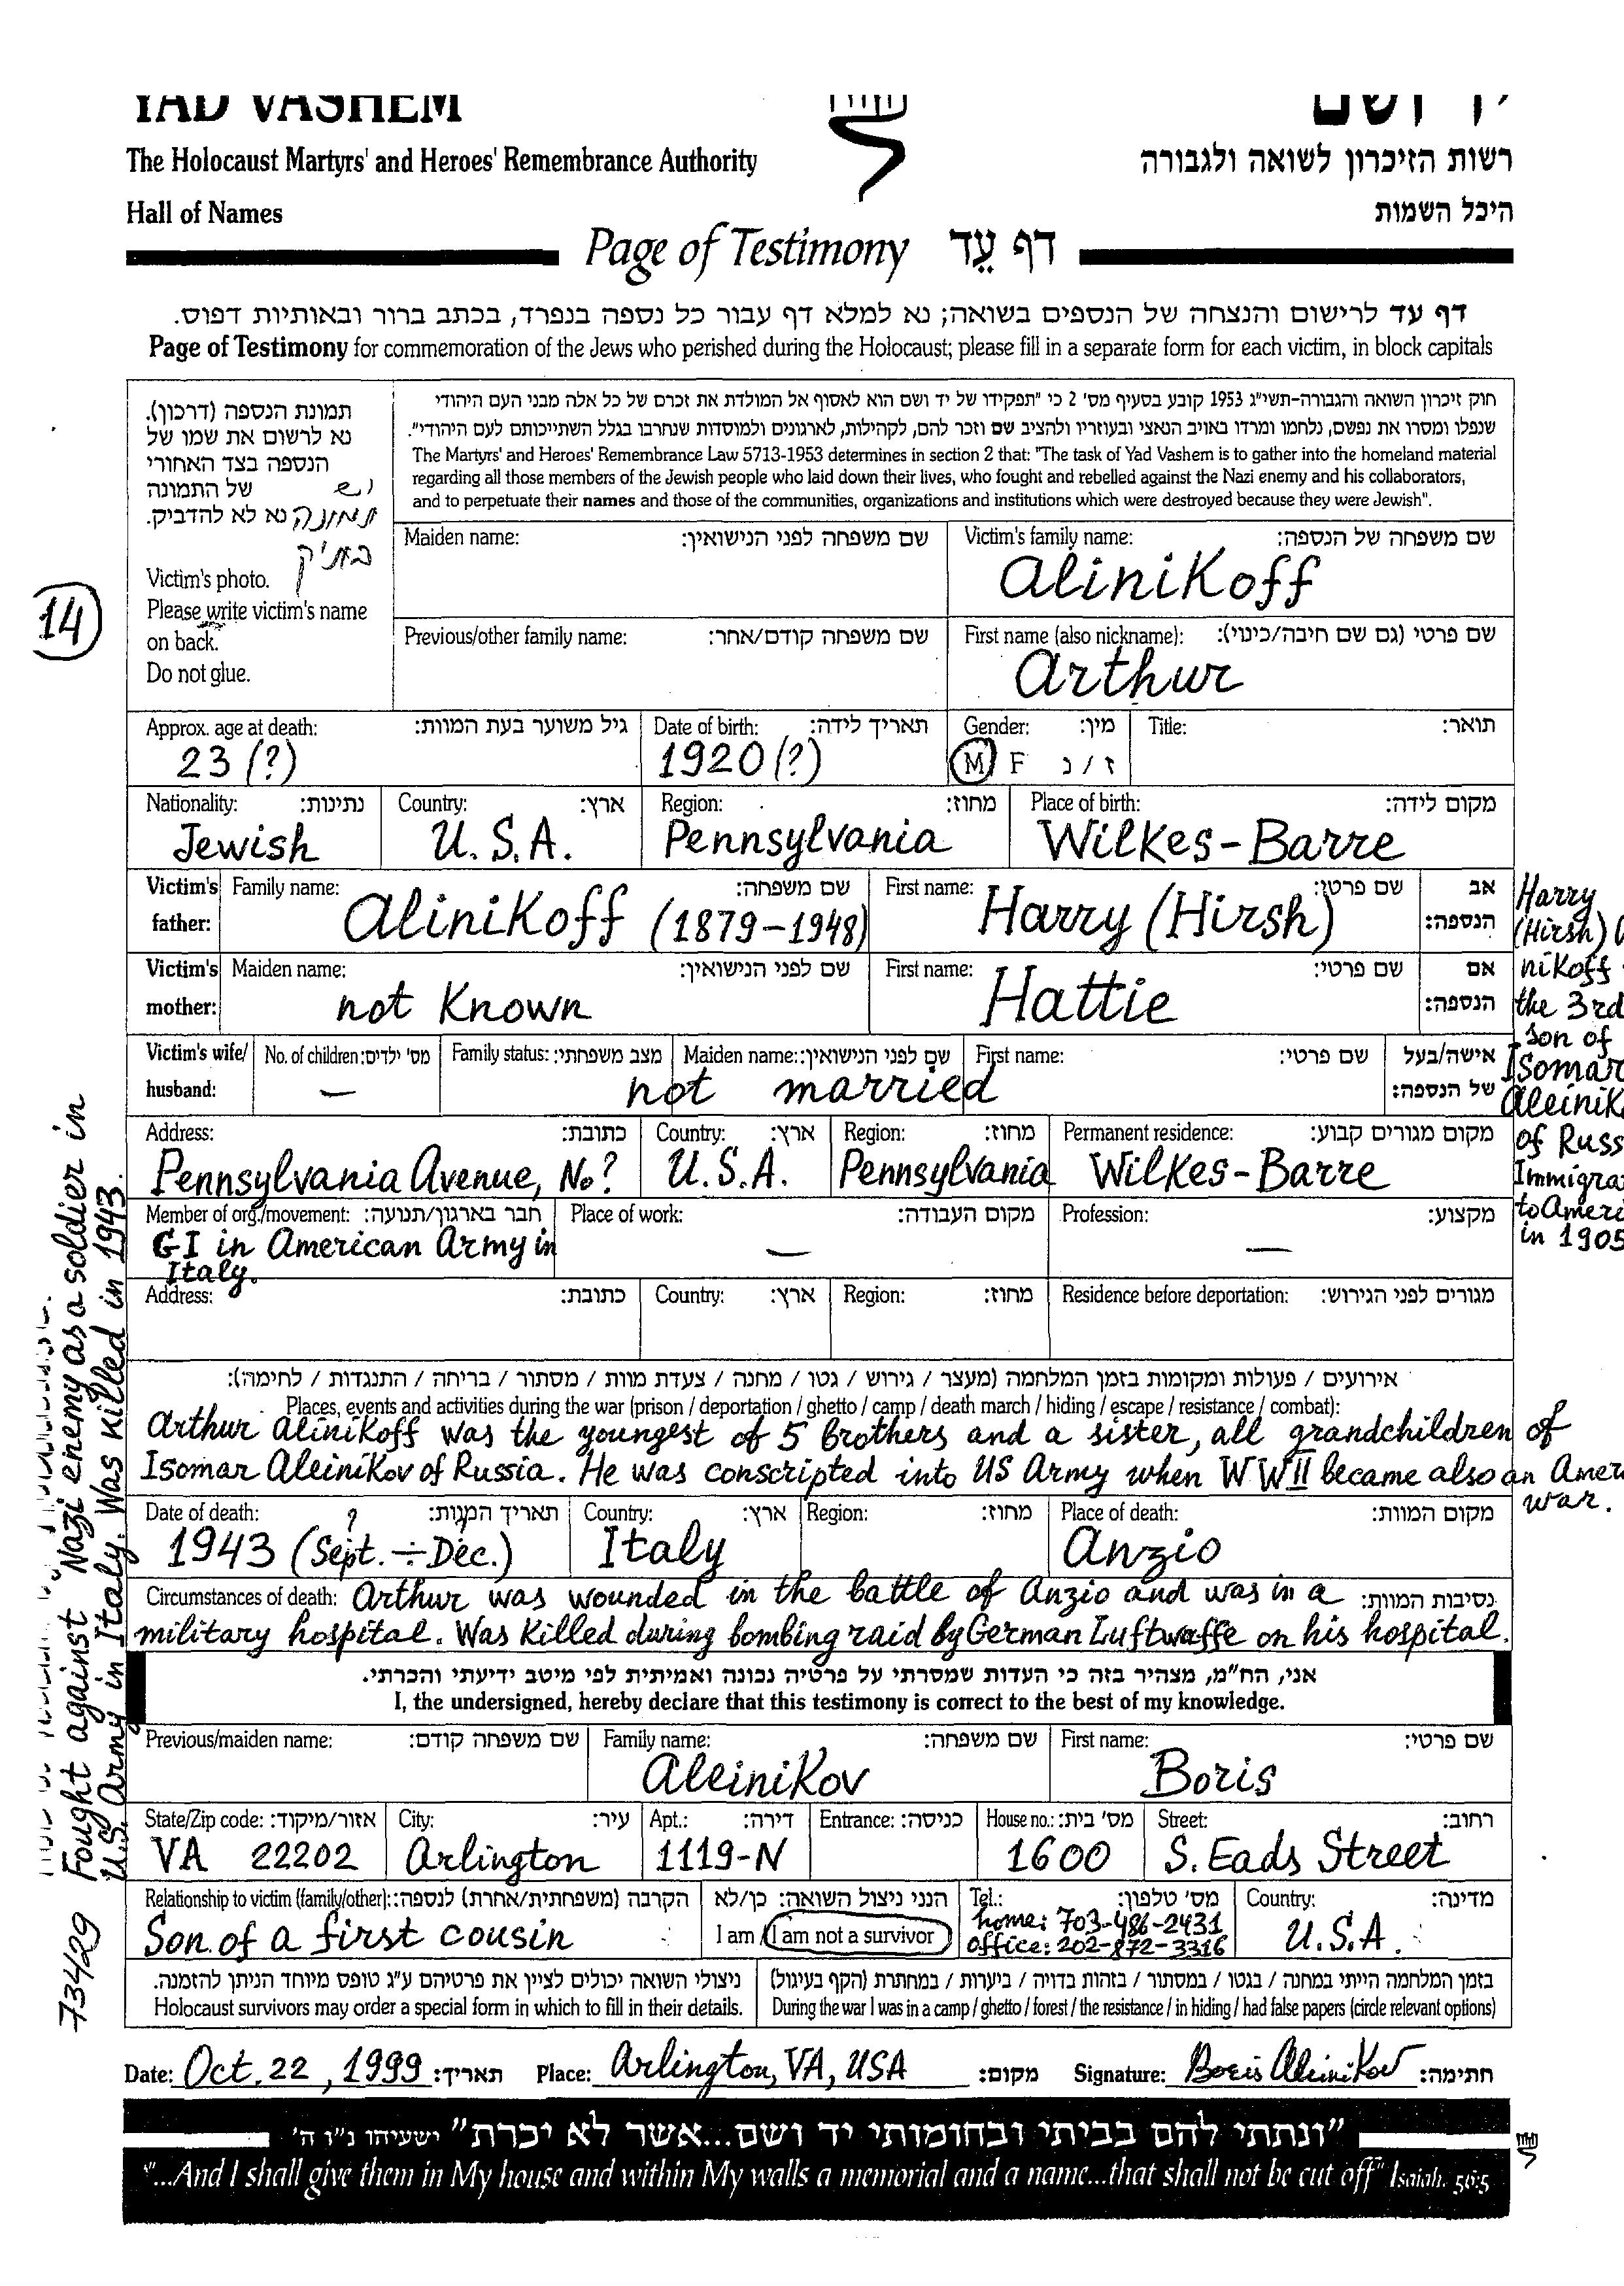 YAD VASHEM
יד ושם
The Holocaust Martyrs' and Heroes' Remembrance Authority
רשות הזיכרון לשואה ולגבורה
Hall of Names
היכל השמות
Page of Testimony דף עֵד
דף עד לרישום והנצחה של הנספים בשואה; נא למלא דף עבור כל נספה בנפרד, בכתב ברור ובאותיות דפוס.
Page of Testimony for commemoration of the Jews who perished during the Holocaust; please fill in a separate form for each victim, in block capitals
תמונת הנספה (דרכון).
נא לרשום את שמו של
הנספה בצד האחורי
של התמונה
נא לא להדביק.
יש
תמונה
בתיק
Victim's photo.
Please write victim's name
on back.
Do not glue.
14
חוק זיכרון השואה והגבורה-תשי"ג 1953 קובע בסעיף מס' 2 כי "תפקידו של יד ושם הוא לאסוף אל המולדת את זכרם של כל אלה מבני העם היהודי
שנפלו ומסרו את נפשם, נלחמו ומרדו באויב הנאצי ובעוזריו ולהציב שם וזכר להם, לקהילות, לארגונים ולמוסדות שנחרבו בגלל השתייכותם לעם היהודי".
The Martyrs' and Heroes' Remembrance Law 5713-1953 determines in section 2 that: "The task of Yad Vashem is to gather into the homeland material
regarding all those members of the Jewish people who laid down their lives, who fought and rebelled against the Nazi enemy and his collaborators,
and to perpetuate their names and those of the communities, organizations and institutions which were destroyed because they were Jewish".
Maiden name: שם משפחה לפני הנישואין:
Victim's family name: שם משפחה של הנספה:
Alinikoff
Previous/other family name: שם משפחה קודם/אחר:
First name (also nickname): שם פרטי (גם שם חיבה/כינוי):
Arthur
Approx. age at death: גיל משוער בעת המוות:
23 (?)
Date of birth: תאריך לידה:
1920 (?)
Gender: מין:
M F ז / נ
Title: תואר:
Nationality: נתינות:
Jewish
Country: ארץ:
U.S.A.
Region: מחוז:
Pennsylvania
Place of birth: מקום לידה:
Wilkes-Barre
Victim's father: Family name: שם משפחה:
Alinikoff (1879-1948)
First name: שם פרטי:
Harry (Hirsh)
אב הנספה:
Victim's mother: Maiden name: שם לפני הנישואין:
not known
First name: שם פרטי:
Hattie
אם הנספה:
Harry
(Hirsh)
nikoff
the 3rd
son of
Isomar
of
to
in 1905
Victim's wife/ husband: No. of children: מס' ילדים:
—
Family status: מצב משפחתי: Maiden name: שם לפני הנישואין: First name: שם פרטי:
not married
אישה/בעל של הנספה:
Address: כתובת:
Pennsylvania Avenue, No?
Country: ארץ:
U.S.A.
Region: מחוז:
Pennsylvania
Permanent residence: מקום מגורים קבוע:
Wilkes-Barre
Member of org./movement: חבר בארגון/תנועה:
GI in American Army in
Italy.
Place of work: מקום העבודה:
—
Profession: מקצוע:
—
Address: כתובת: Country: ארץ: Region: מחוז: Residence before deportation: מגורים לפני הגירוש:
אירועים / פעולות ומקומות בזמן המלחמה (מעצר / גירוש / גטו / מחנה / צעדת מוות / מסתור / בריחה / התנגדות / לחימה):
Places, events and activities during the war (prison / deportation / ghetto / camp / death march / hiding / escape / resistance / combat):
Arthur Alinikoff was the youngest of 5 brothers and a sister, all grandchildren of
Isomar Aleinikov of Russia. He was conscripted into US Army when WWII became also an Amer
war.
Fought against Nazi enemy as a soldier in
U.S. Army in Italy. Was killed in 1943.
73429
Date of death: תאריך המוות:
1943 (Sept. ÷ Dec.) ?
Country: ארץ:
Italy
Region: מחוז:
Place of death: מקום המוות:
Anzio
Circumstances of death: Arthur was wounded in the battle of Anzio and was in a נסיבות המוות:
military hospital. Was killed during bombing raid by German Luftwaffe on his hospital.
אני, הח"מ, מצהיר בזה כי העדות שמסרתי על פרטיה נכונה ואמיתית לפי מיטב ידיעתי והכרתי.
I, the undersigned, hereby declare that this testimony is correct to the best of my knowledge.
Previous/maiden name: שם משפחה קודם:
Family name: שם משפחה:
Aleinikov
First name: שם פרטי:
Boris
State/Zip code: אזור/מיקוד:
VA 22202
City: עיר:
Arlington
Apt.: דירה:
1119-N
Entrance: כניסה:
House no.: מס' בית:
1600
Street: רחוב:
S. Eads Street
Relationship to victim (family/other): הקרבה (משפחתית/אחרת) לנספה:
Son of a first cousin
הנני ניצול השואה: כן/לא
I am / I am not a survivor
Tel.: מס' טלפון:
home: 703-486-2431
office: 202-872-3316
Country: מדינה:
U.S.A.
ניצולי השואה יכולים לציין את פרטיהם ע"ג טופס מיוחד הניתן להזמנה.
Holocaust survivors may order a special form in which to fill in their details.
בזמן המלחמה הייתי במחנה / בגטו / במסתור / בזהות בדויה / ביערות / במחתרת (הקף בעיגול)
During the war I was in a camp / ghetto / forest / the resistance / in hiding / had false papers (circle relevant options)
Date: Oct. 22, 1999 תאריך: Place: Arlington, VA, USA מקום: Signature: Boris Aleinikov חתימה:
"ונתתי להם בביתי ובחומותי יד ושם...אשר לא יכרת" ישעיהו נ"ו ה'
"...And I shall give them in My house and within My walls a memorial and a name...that shall not be cut off" Isaiah. 56:5